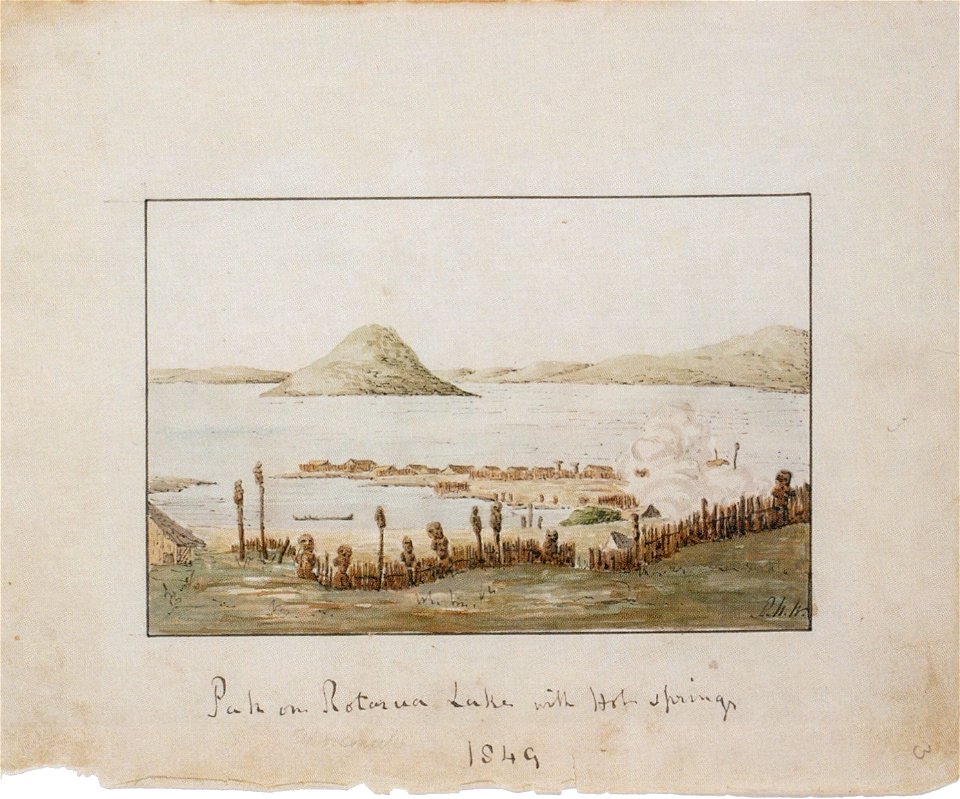 Pah on Rotarua Lake with Hot springs
1849
3